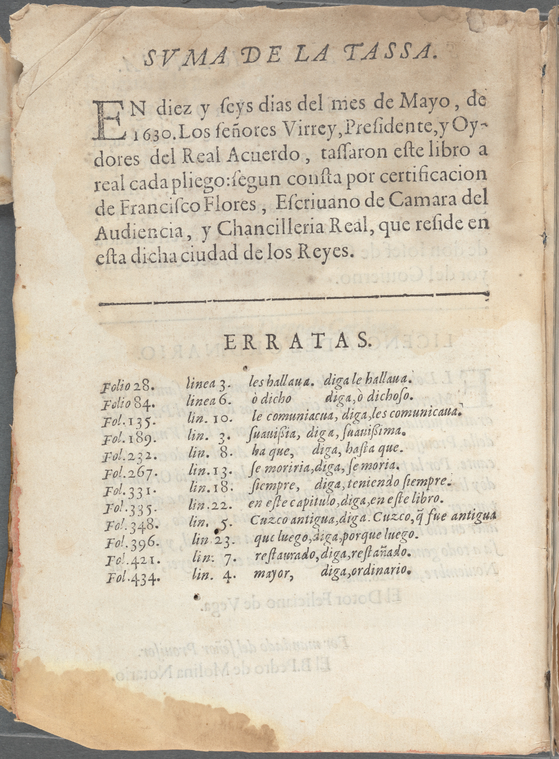 SVMA DE LA TASSA.
EN diez y seys dias del mes de Mayo, de
1630. Los señores Virrey, Presidente, y Oy-
dores del Real Acuerdo, tassaron este libro a
real cada pliego: segun consta por certificacion
de Francisco Flores, Escriuano de Camara del
Audiencia, y Chancilleria Real, que reside en
esta dicha ciudad de los Reyes.
ERRATAS.
Folio 28. linea 3. les hallaua. diga le hallaua.
Folio 84. linea 6. ò dicho diga, ò dichoso.
Fol. 135. lin. 10. le comuniacua, diga, les comunicaua.
Fol. 189. lin. 3. suauissia, diga, suauissima.
Fol. 232. lin. 8. ha que, diga, hasta que.
Fol. 267. lin. 13. se moriria, diga, se moria.
Fol. 331. lin. 18. siempre, diga, teniendo siempre.
Fol. 335. lin. 22. en este capitulo, diga, en este libro.
Fol. 348. lin. 5. Cuzco antigua, diga. Cuzco, q̃ fue antigua
Fol. 396. lin 23. que luego, diga, porque luego.
Fol. 421. lin. 7. restaurado, diga, restañado.
Fol. 434. lin. 4. mayor, diga, ordinario.